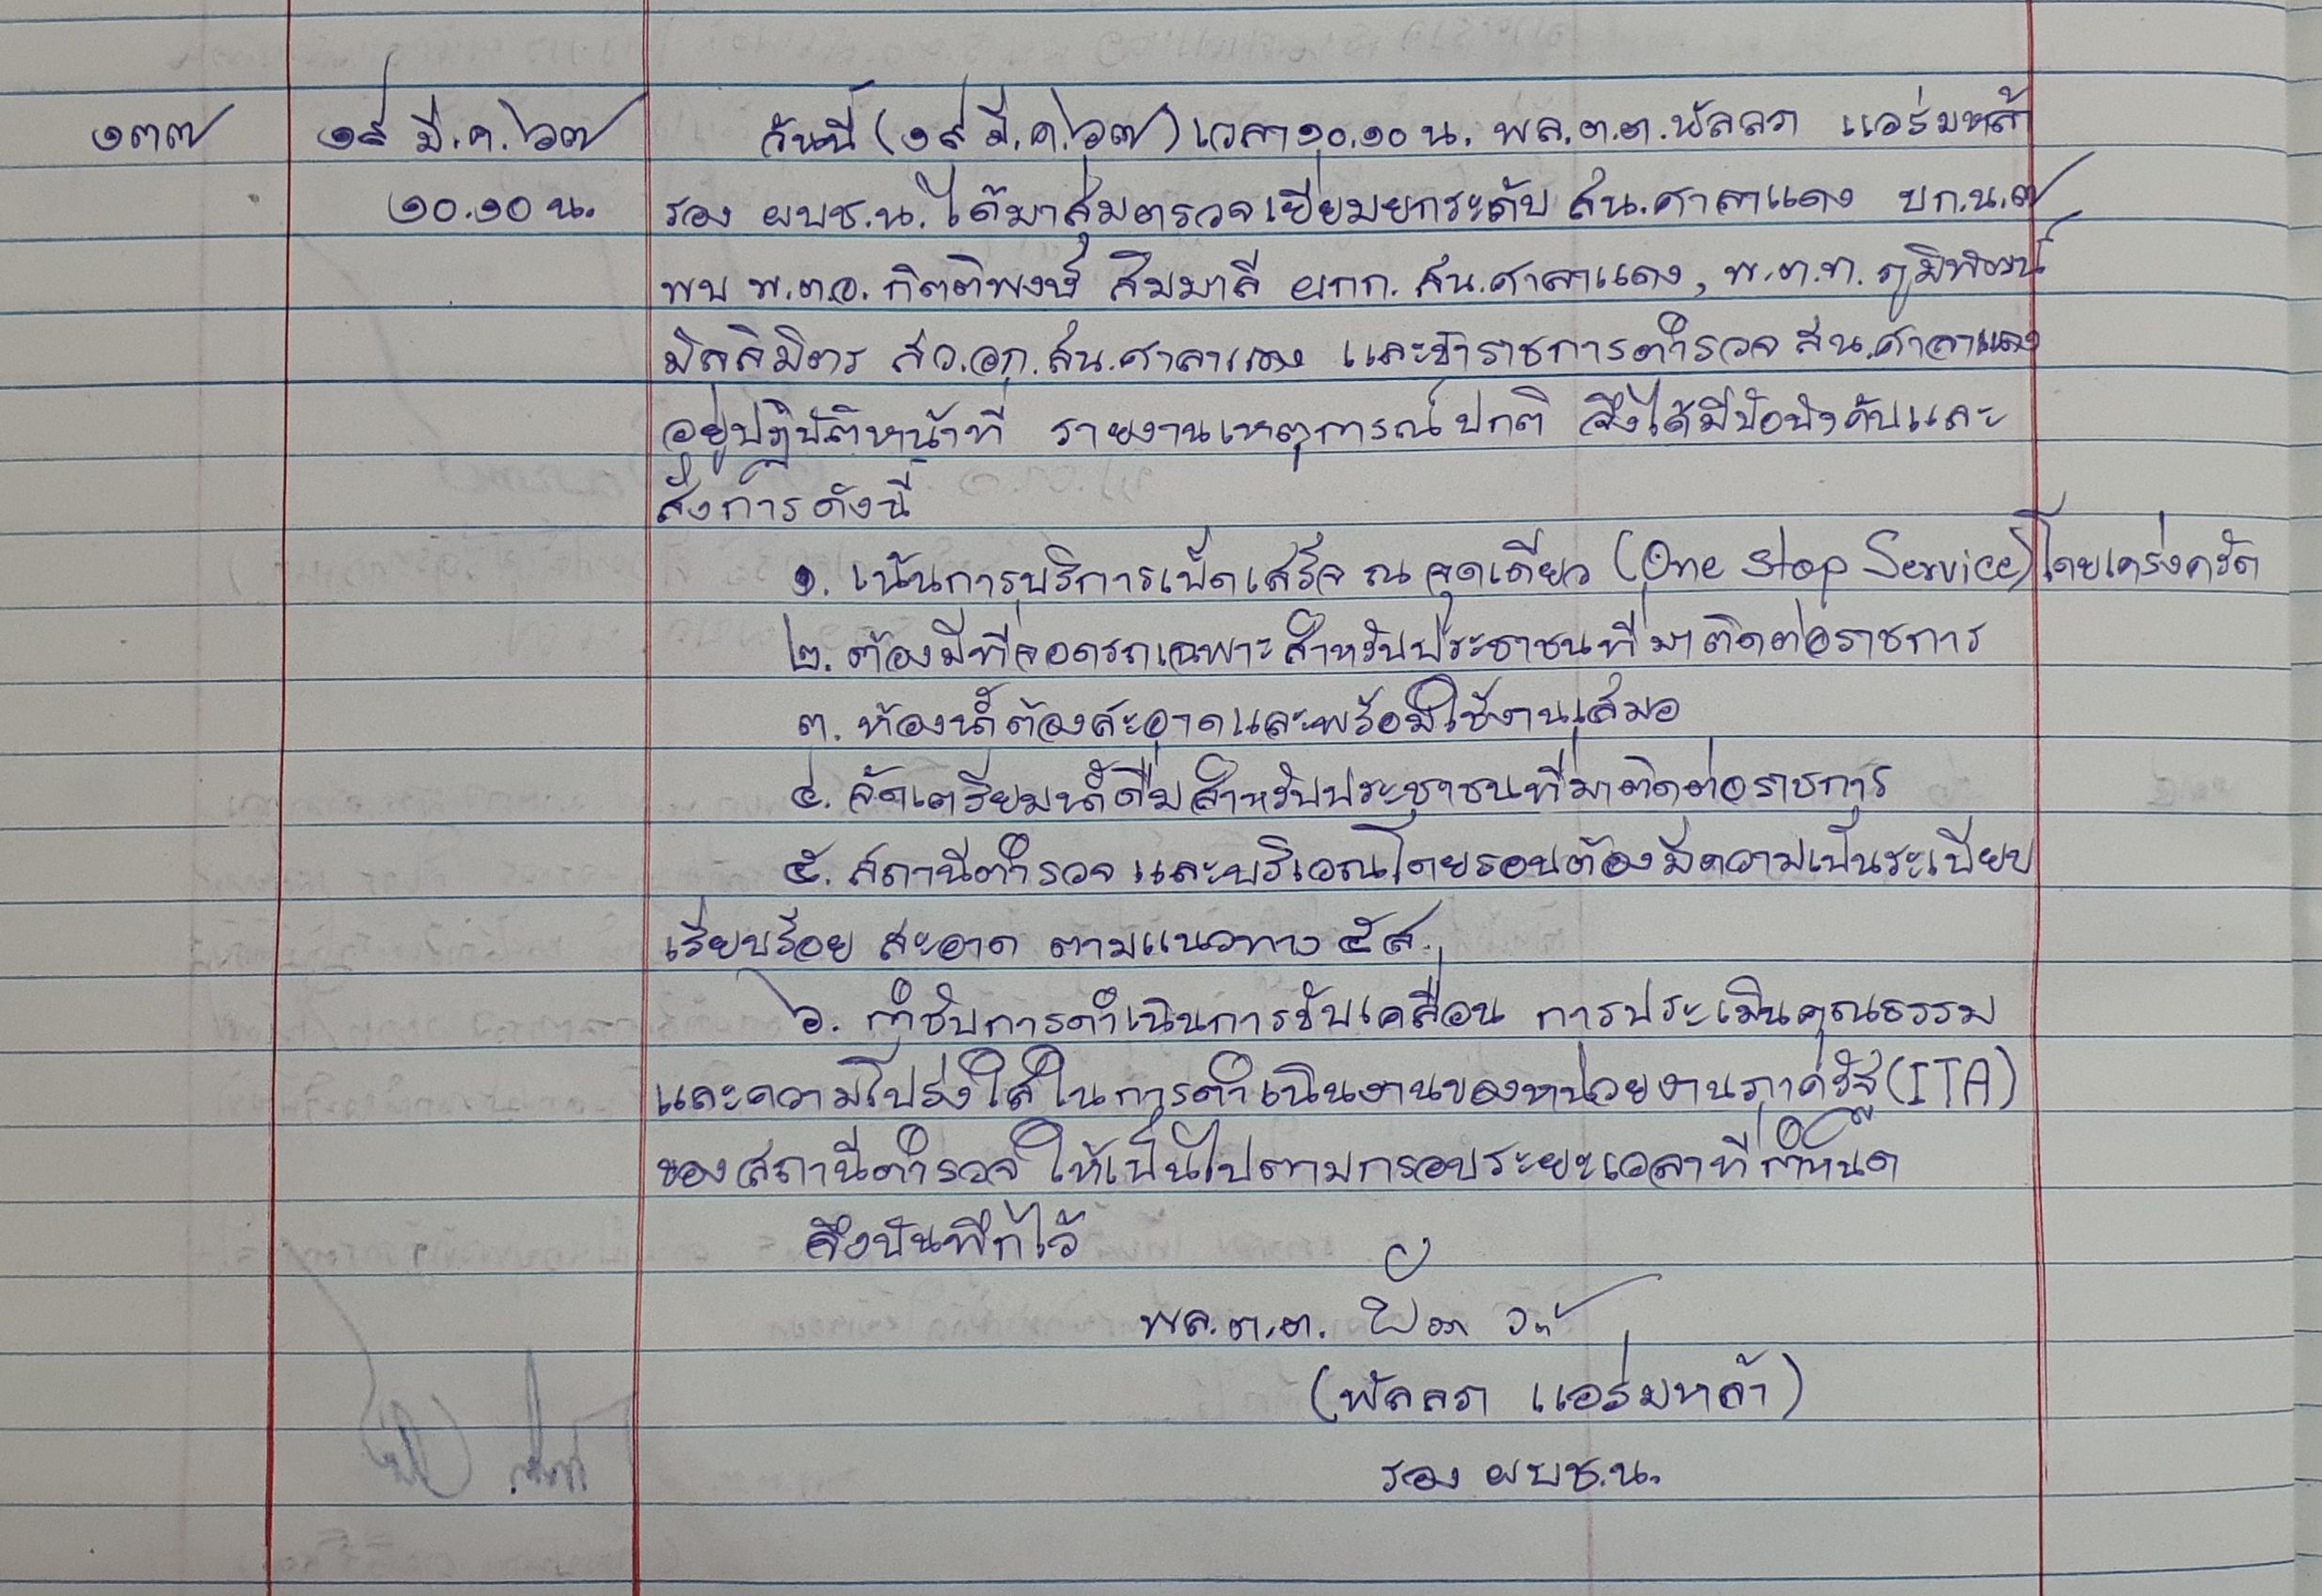 ๑๓๗ ๑๙ มี.ค.๖๗ วันนี้ (๑๙ มี.ค.๖๗) เวลา ๑๐.๑๐ น. พล.ต.ต.พัลลภ แอร่มหล้า
๑๐.๑๐ น. รอง ผบช.น. ได้มาสุ่มตรวจเยี่ยมยกระดับ สน.ศาลาแดง บก.น.๗
พบ พ.ต.อ. กิตติพงษ์ สิมมาลี ผกก. สน.ศาลาแดง, พ.ต.ท. ภูมิพัฒน์
มัลลิมิตร สว.อก. สน.ศาลาแดง และข้าราชการตำรวจ สน.ศาลาแดง
อยู่ปฏิบัติหน้าที่ รายงานเหตุการณ์ปกติ จึงได้มีข้อบังคับและ
สั่งการดังนี้
๑. เน้นการบริการเบ็ดเสร็จ ณ จุดเดียว (One Stop Service) โดยเคร่งครัด
๒. ต้องมีที่จอดรถเฉพาะสำหรับประชาชนที่มาติดต่อราชการ
๓. ห้องน้ำต้องสะอาดและพร้อมใช้งานเสมอ
๔. จัดเตรียมน้ำดื่มสำหรับประชาชนที่มาติดต่อราชการ
๕. สถานีตำรวจ และบริเวณโดยรอบต้องมีความเป็นระเบียบ
เรียบร้อย สะอาด ตามแนวทาง ๕ส.
๖. กำชับการดำเนินการขับเคลื่อน การประเมินคุณธรรม
และความโปร่งใสในการดำเนินงานของหน่วยงานภาครัฐ (ITA)
ของสถานีตำรวจ ให้เป็นไปตามกรอบระยะเวลาที่กำหนด
จึงบันทึกไว้
พล.ต.ต.
(พัลลภ แอร่มหล้า)
รอง ผบช.น.